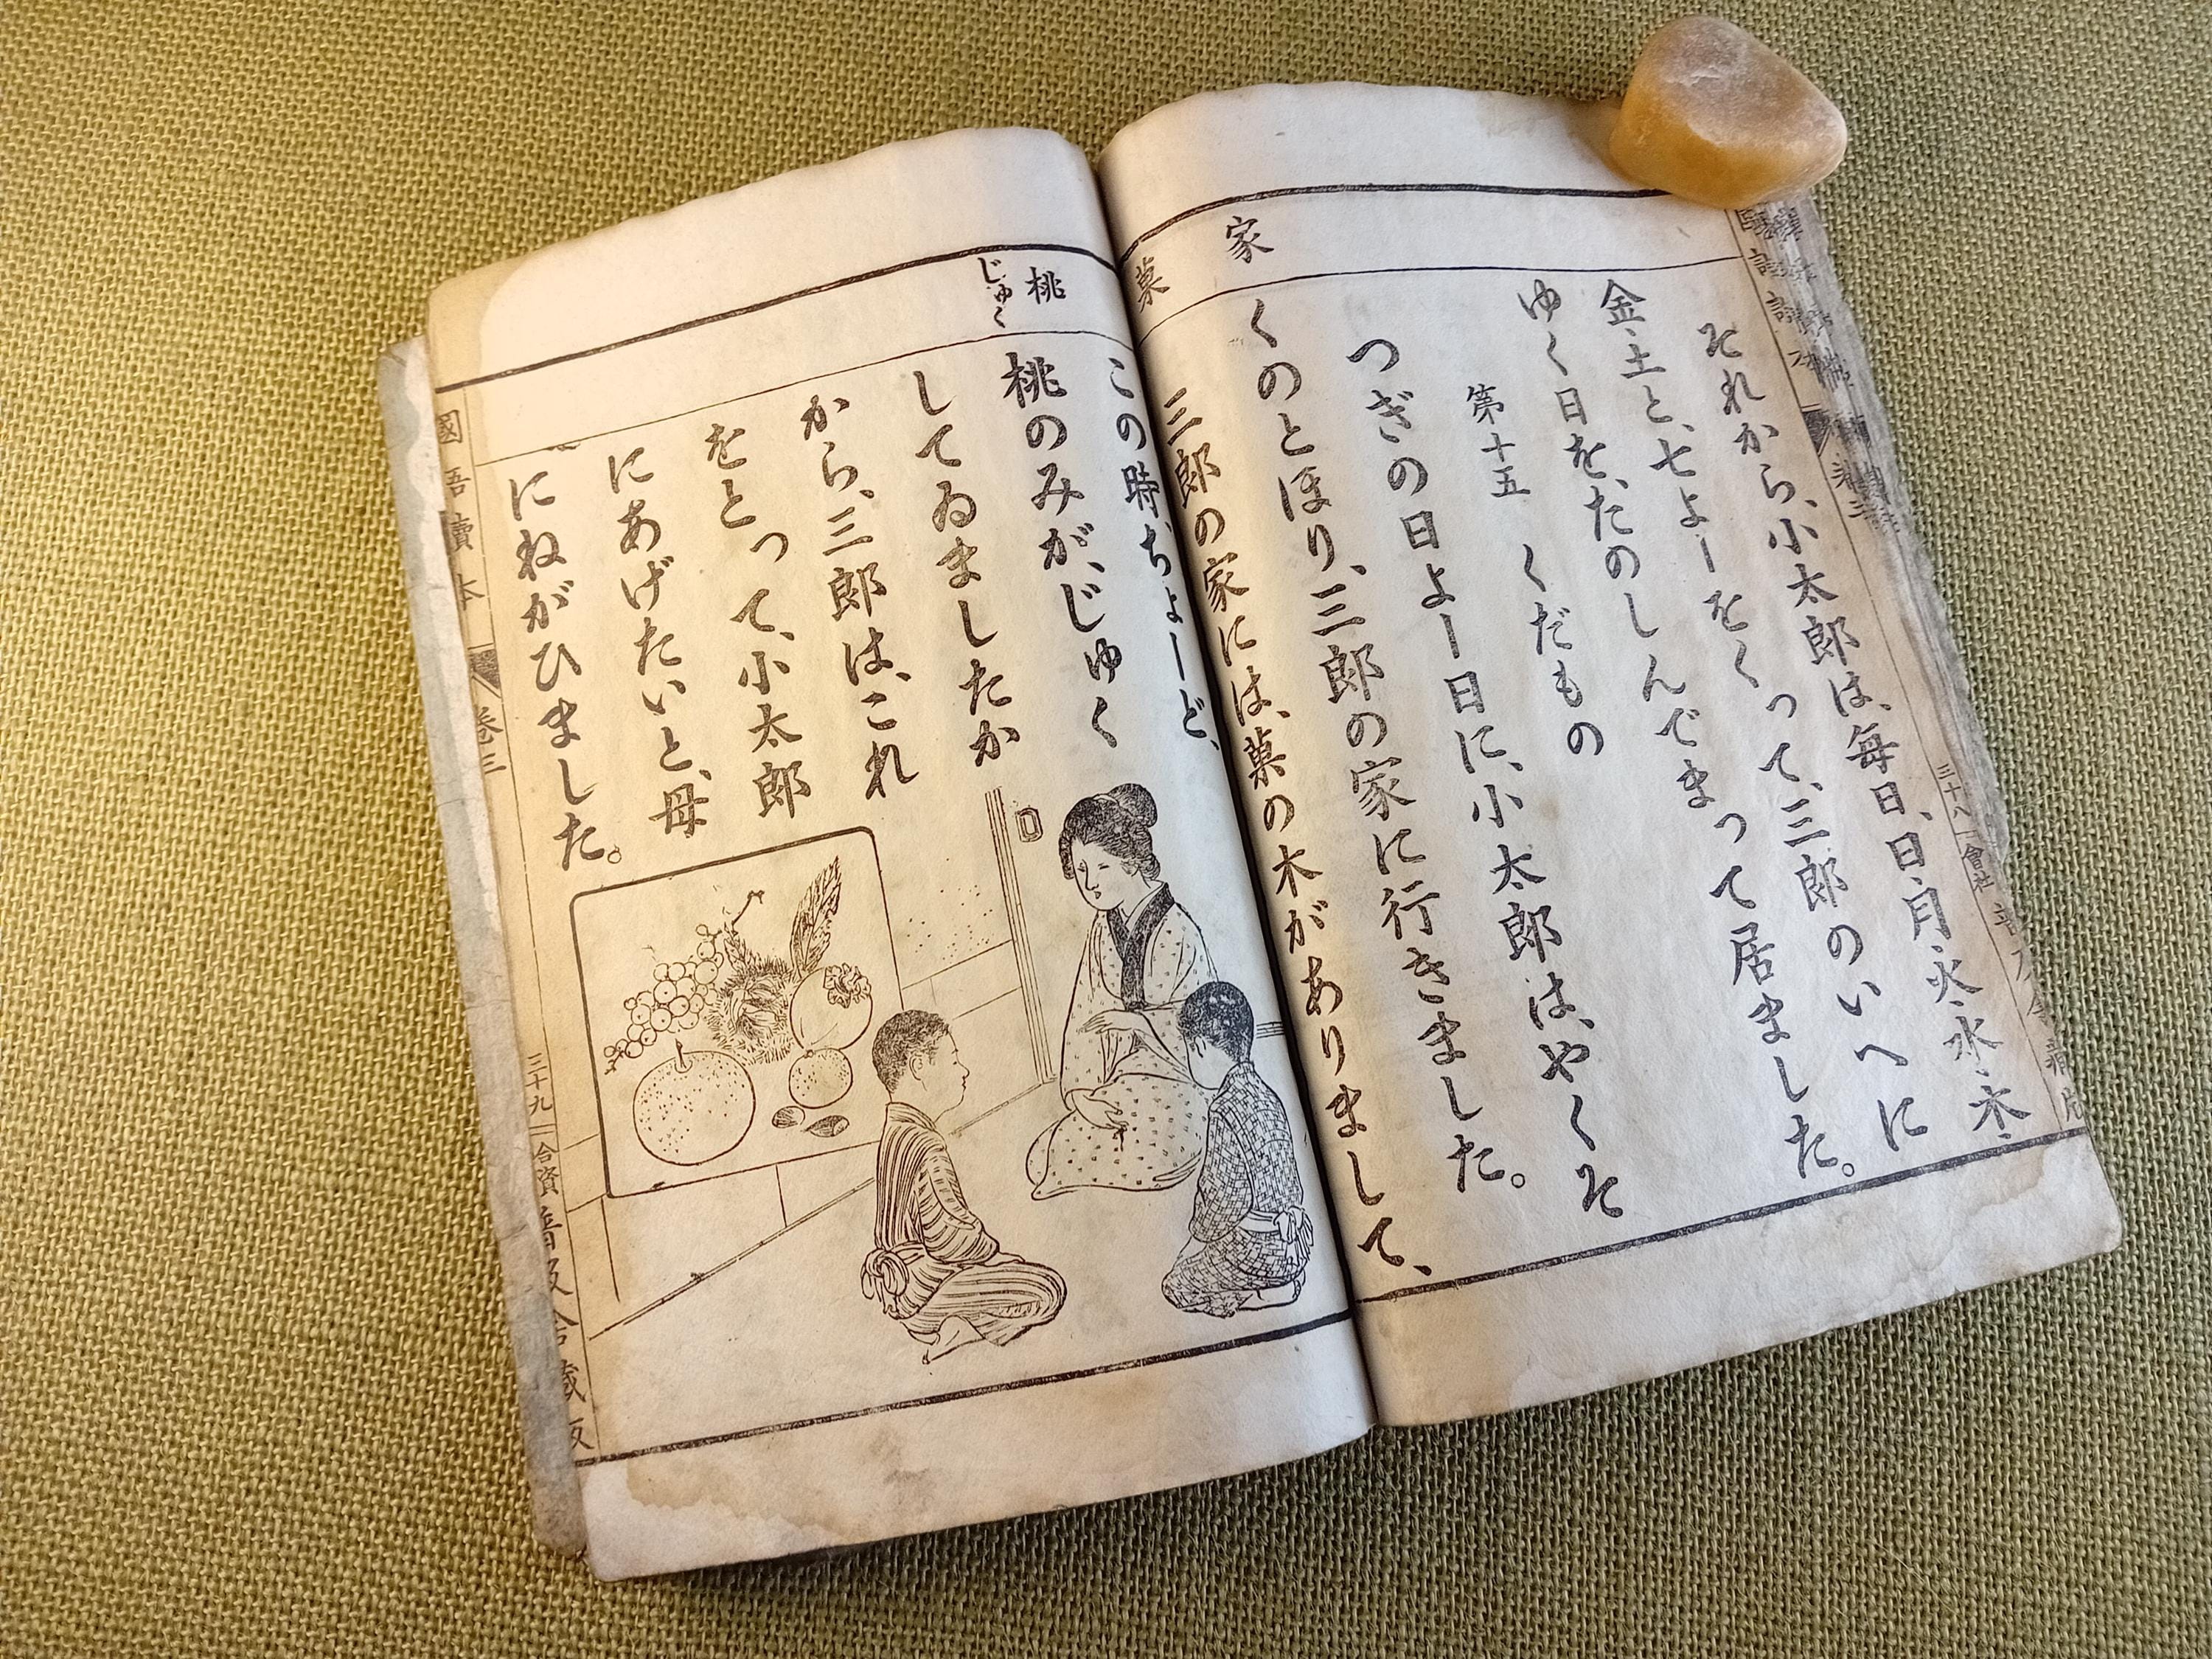 それから、小太郎は、毎日、日・月・火・水・木・
金・土と、七よーをくって、三郎のいへに
ゆく日を、たのしんでまって居ました。
第十五 くだもの
つぎの日よー日に、小太郎は、やくそ
くのとほり、三郎の家に行きました。
三郎の家には、菓の木がありまして、
家
菓
卷三
三十八
會社
この時、ちょーど、
桃のみが、じゅく
してゐましたか
から、三郎は、これ
をとって、小太郎
にあげたいと、母
にねがひました。
桃
じゅく
國語讀本
卷三
三十九
合資